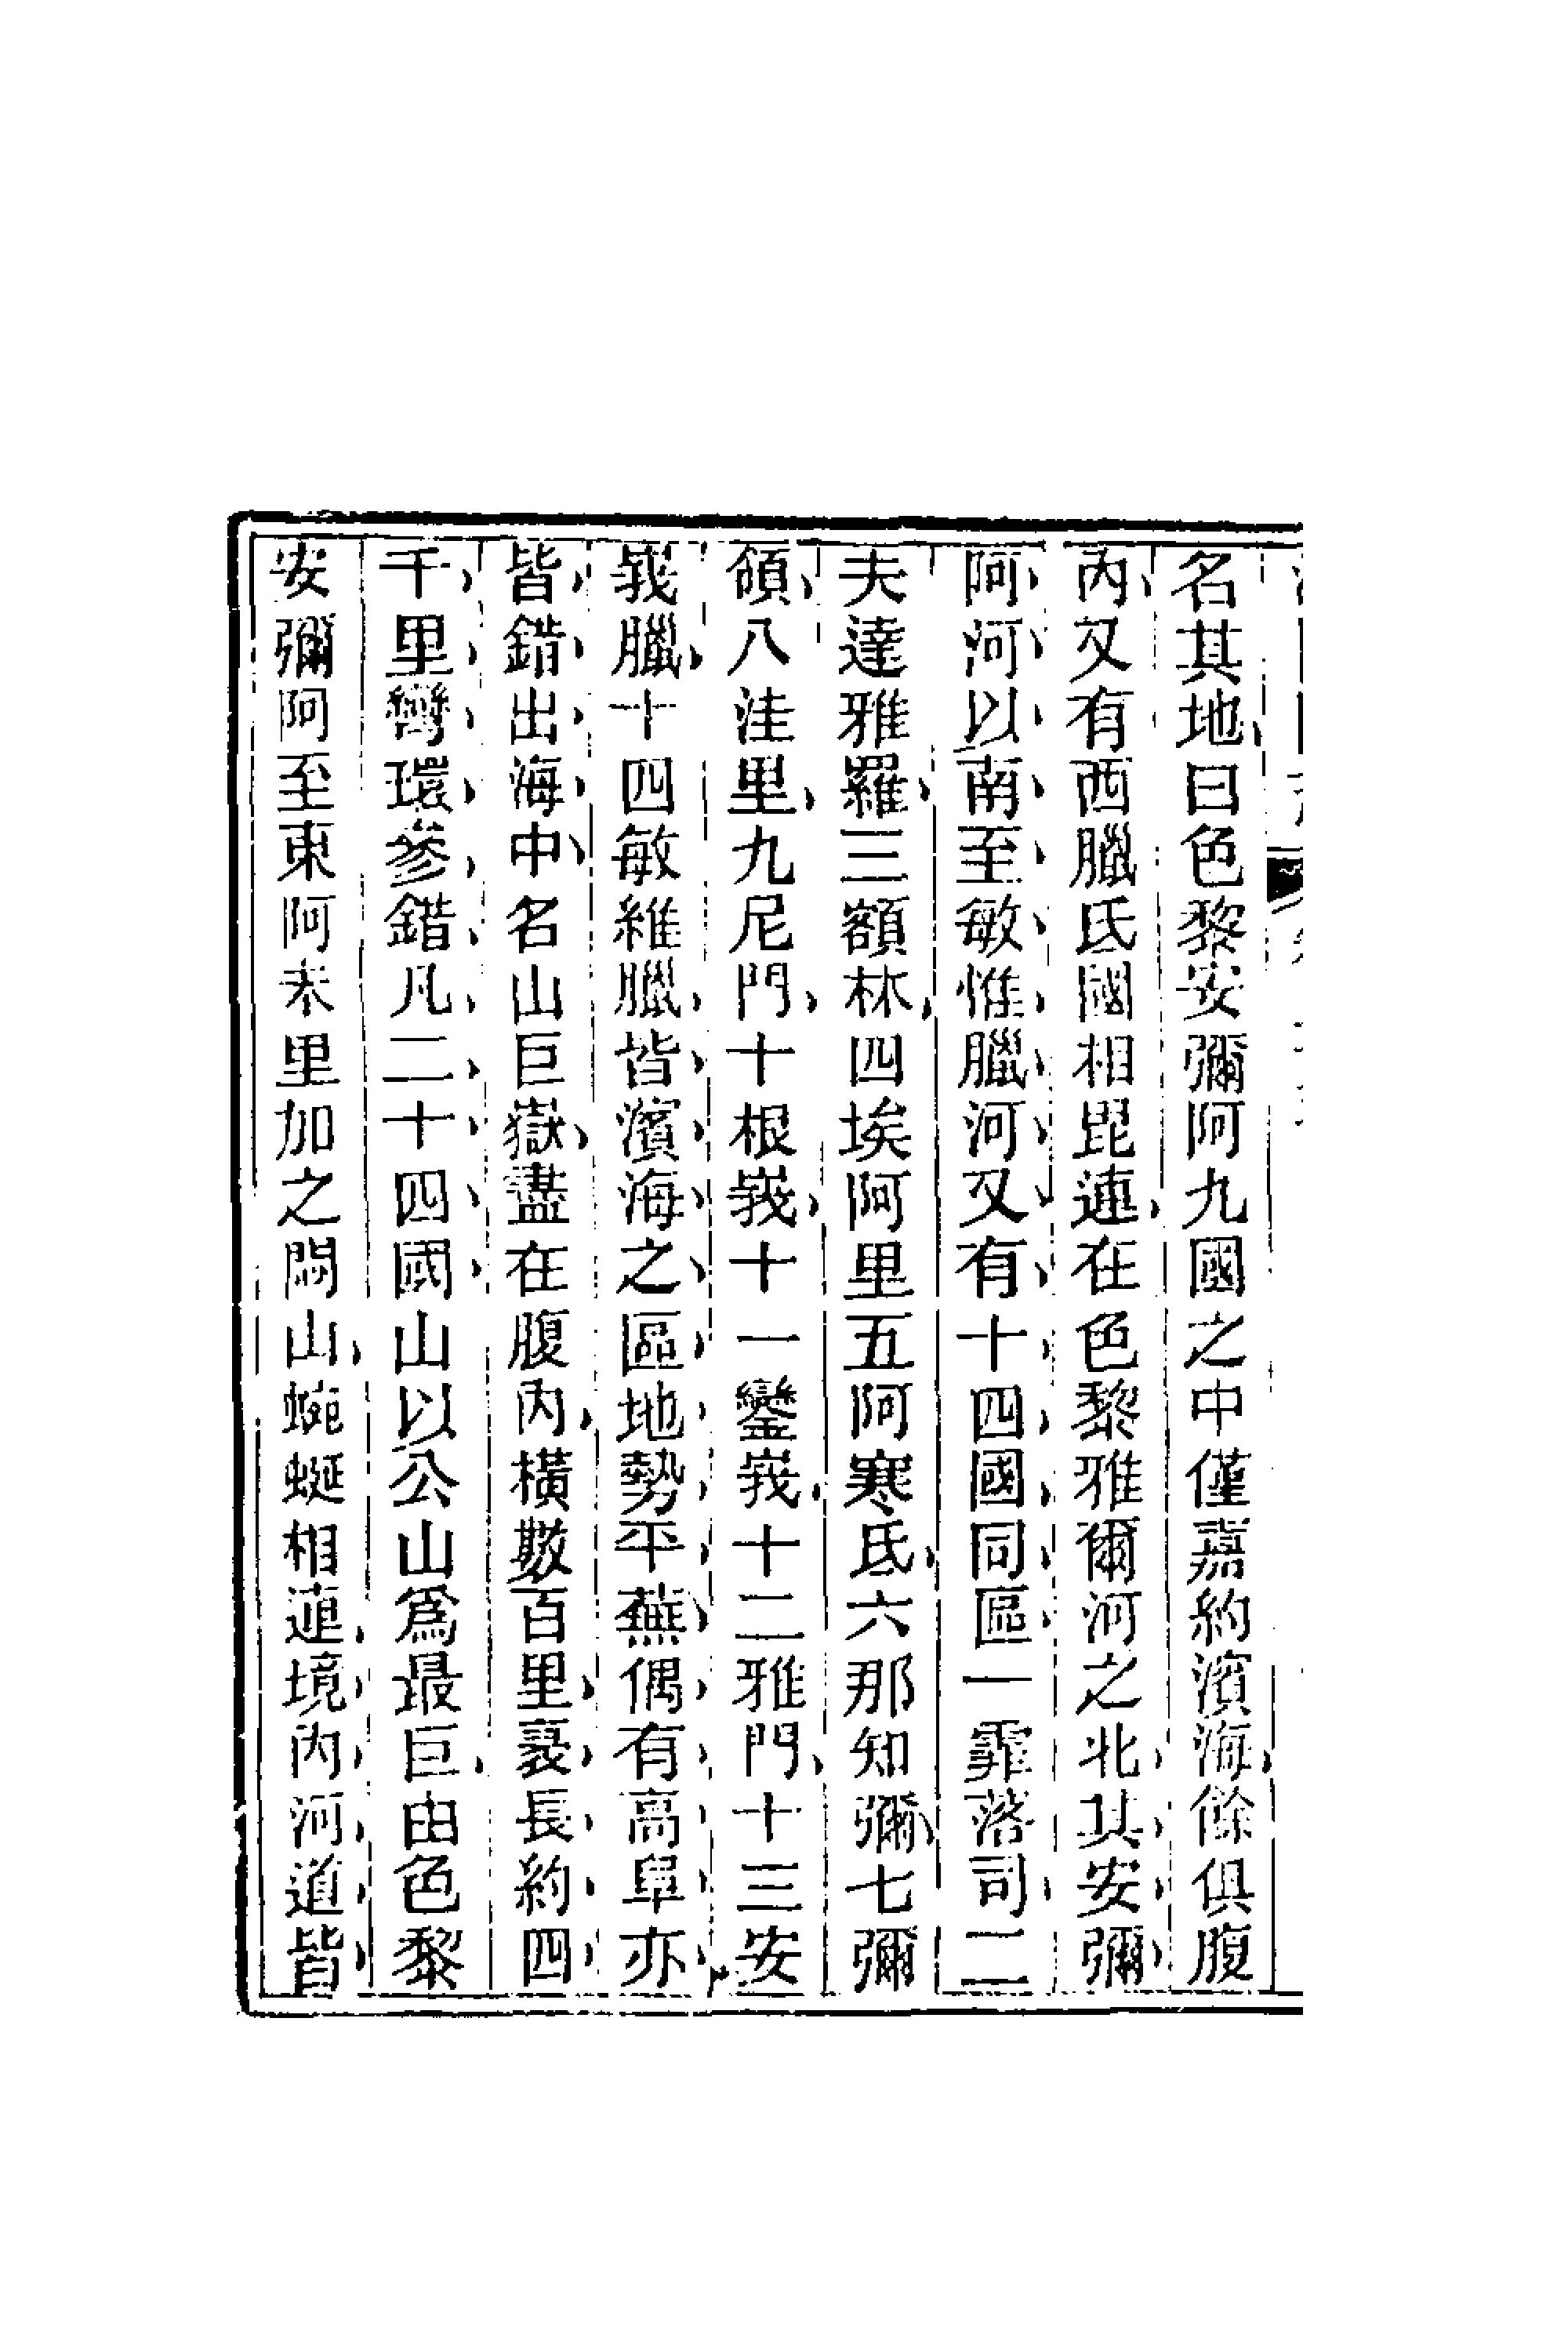 名其地曰色黎安彌阿九國之中僅嘉約濱海餘俱腹
內又有西臘氏國相毘連在色黎雅爾河之北其安彌
阿河以南至敏惟臘河又有十四國同區一霏落司二
夫達雅羅三額林四埃阿里五阿寒氏六那知彌七彌
領八洼里九尼門十根峩十一鑾峩十二雅門十三安
峩臘十四敏維臘皆濱海之區地勢平蕪偶有高阜亦
皆錯出海中名山巨嶽盡在腹內橫數百里袤長約四
千里彎環參錯凡二十四國山以公山爲最巨由色黎
安彌阿至東阿未里加之悶山蜿蜒相連境內河道皆